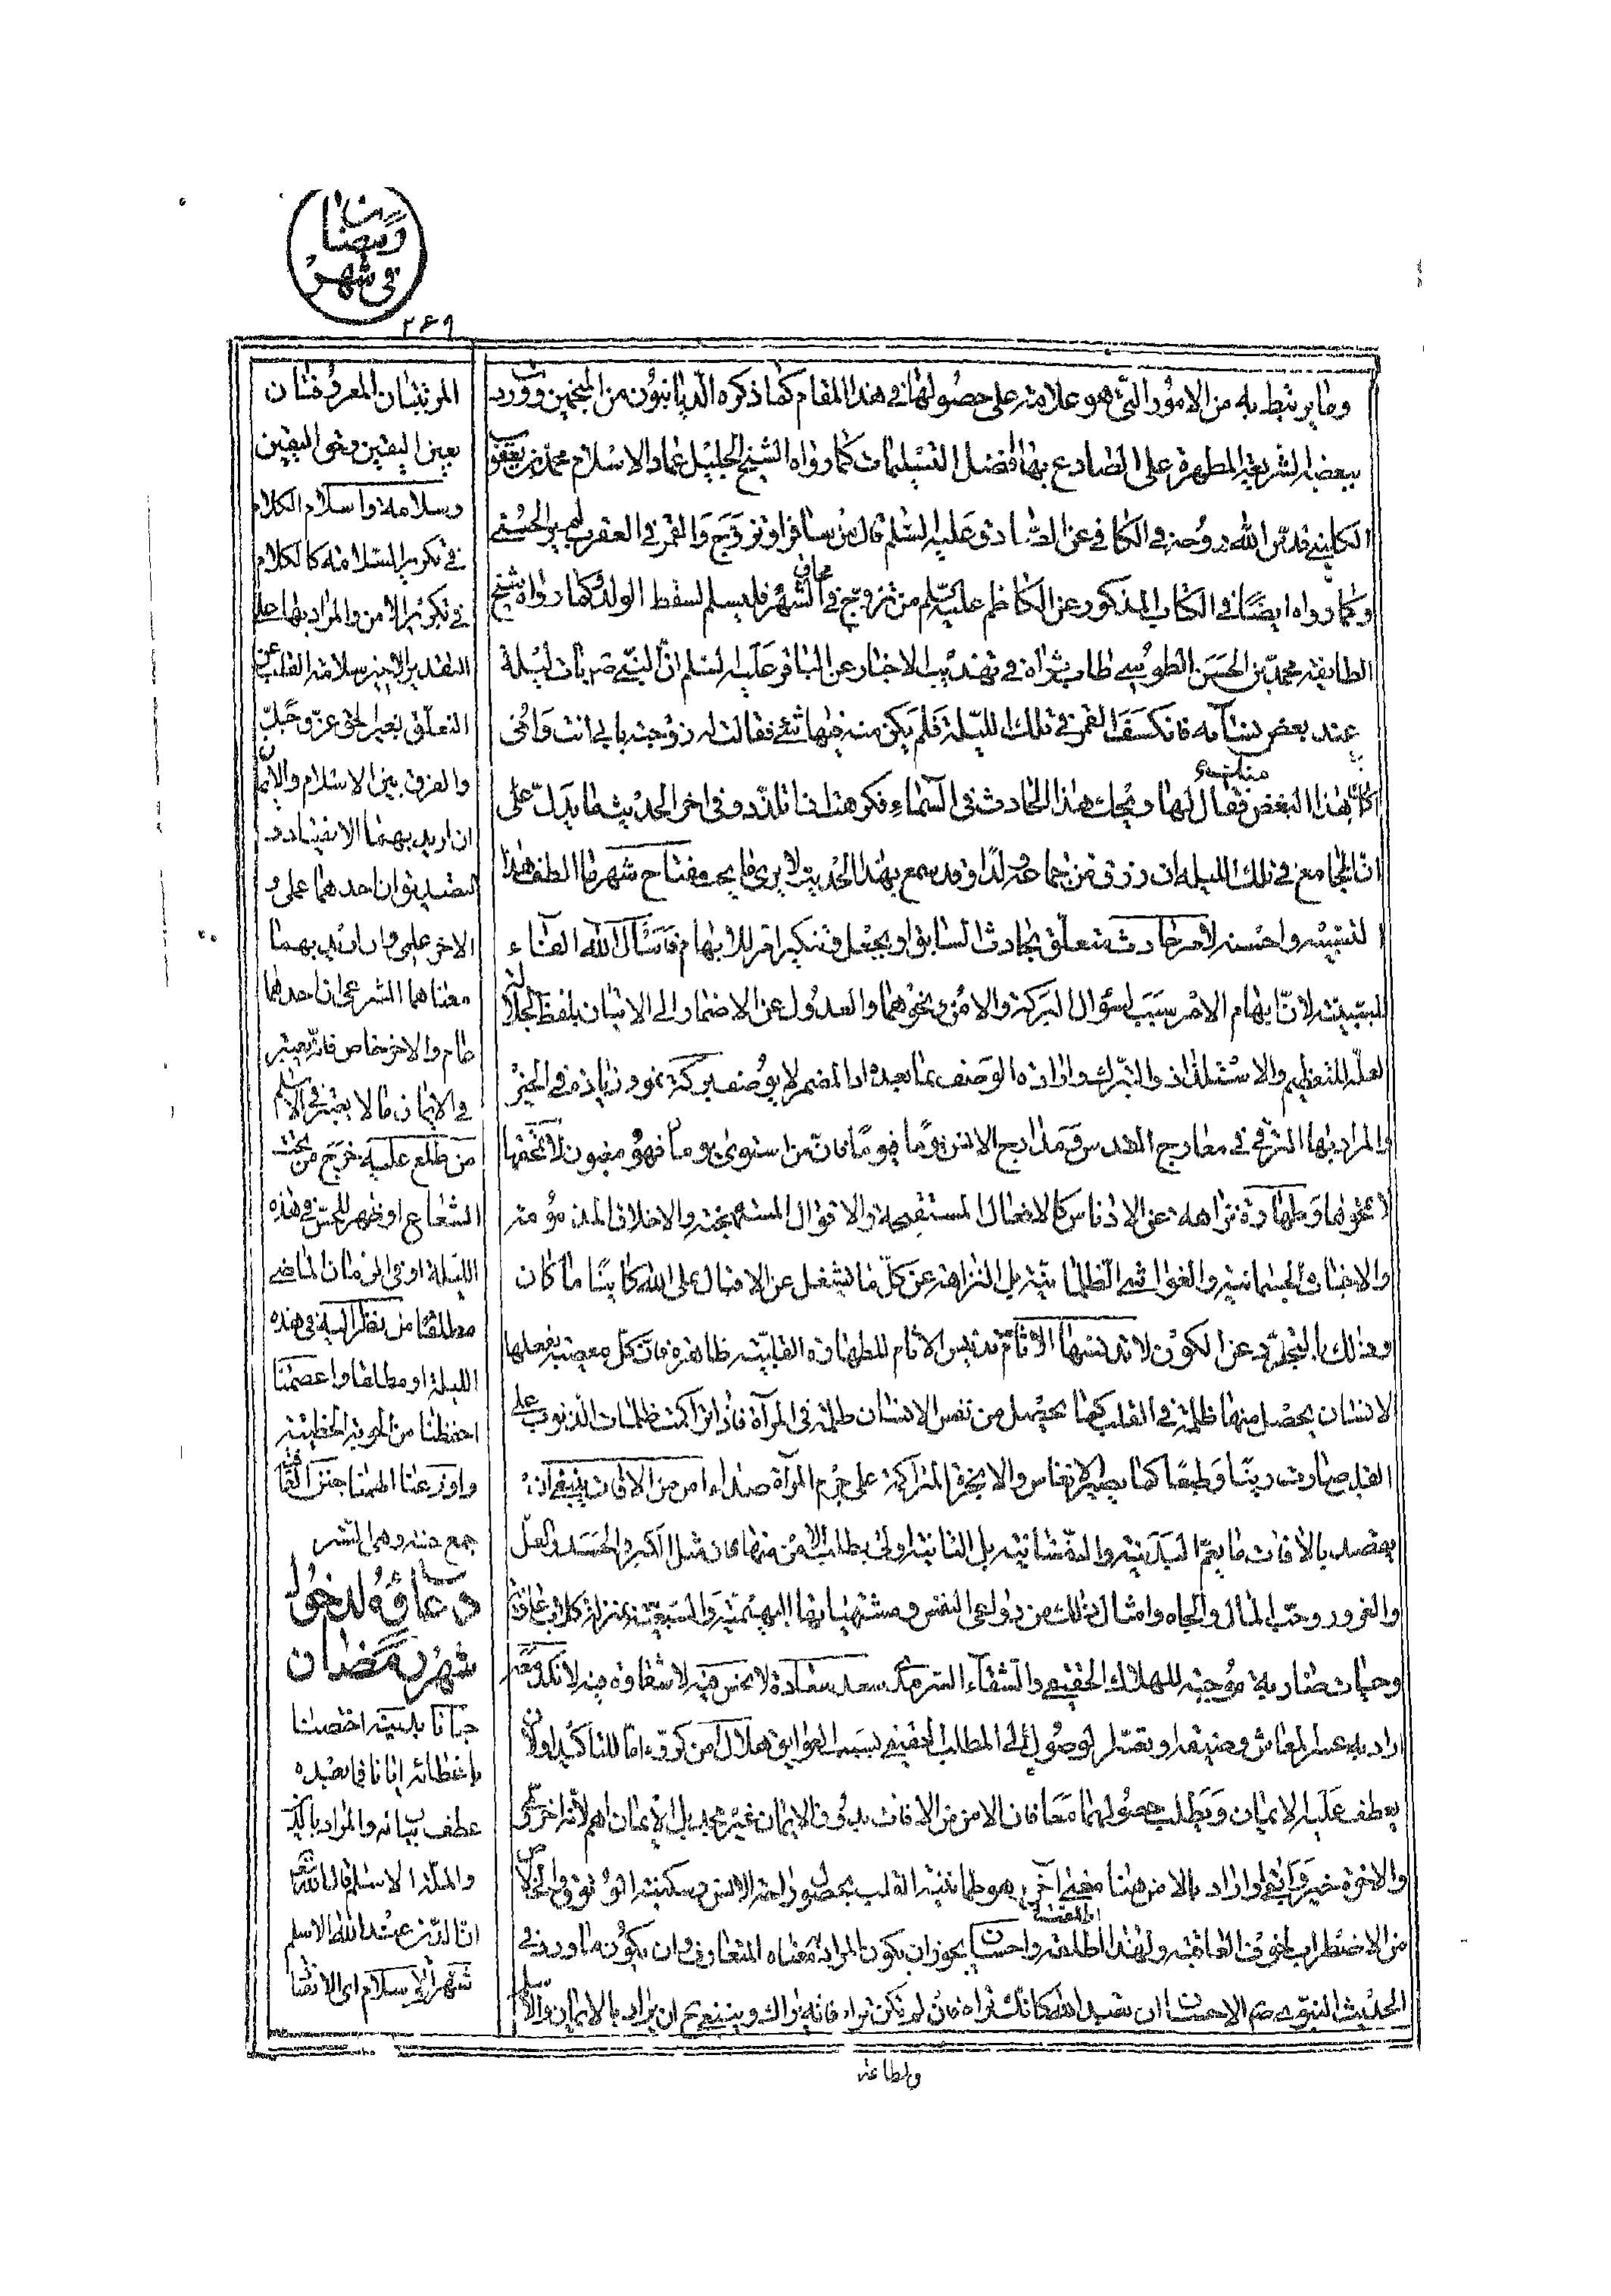 رمضان
في شهر
٢٦٩
وما يرتبط به من الامور التي هو علامة على حصولها في هذا المقام كما ذكره الديانيون من المنجمين وورد
ببعضه الشريعة المطهرة على الصادع بها افضل التسليمات كما رواه الشيخ الجليل عماد الاسلام محمد بن يعقوب
الكليني قدس الله روحه في الكافي عن الصادق عليه السلم قال من سافر او تزوج والقمر في العقرب لم ير الحسنى
وكما رواه ايضا في الكتاب المذكور عن الكاظم عليه السلم من تزوج في محاق الشهر فليسلم لسقط الولد وكما رواه شيخ
الطايفة محمد بن الحسن الطوسي طاب ثراه في تهذيب الاخبار عن الباقر عليه السلم ان النبي ص بات ليلة
عند بعض نسآئه فانكسف القمر في تلك الليلة فلم يكن منه فيها شئ فقالت له زوجته بابي انت وامي
كل هذا البغض فقال لها ويحك هذا الحادث في السماء فكرهت ان اتلذذ وفي اخر الحديث ما يدل على
ان المجامع في تلك الليلة ان رزق من جماعه ولدا وقد سمع بهذا الحديث لا يرى ما يحب مفتاح شهر ما الطف هذا
التشبيه واحسنه لامر حادث متعلق بحادث السابق او بجعل وتنكير امر للابهام فاسأل الله الفاء
للسببية لان ابهام الامر سبب لسؤال البركة والامن ونحوهما والعدول عن الاضمار الى الاتيان بلفظ الجلالة
لعله للتعظيم والاستلذاذ والتبرك وارادة الوصف بما بعده اذ المضمر لا يوصف بركة نمو وزيادة في الخير
والمراد بها الترقي في معارج القدس ومدارج الانس يوما فيوما فان من استوى يوماه فهو مغبون لا تمحقها
لا تمحوها وطهارة نزاهة عن الادناس كالافعال المستقبحة والاقوال المستهجنة والاخلاق المذمومة
والجسمانية والغواشي الظلمانية بل النزاهة عن كل ما يشغل عن الاقبال على الله كاينا ما كان
وذلك بالتجرد عن الكون لا تدنسها الآثام تدنيس الآثام للطهارة القلبية ظاهر فان كل معصية يفعلها
الانسان يحصل منها ظلمة في القلب كما يحصل من نفس الانسان ظلمة في المرآة فاذا تراكمت ظلمات الذنوب على
القلب صارت رينا وطبعا كما يصير الانفاس والابخرة المتراكمة على جرم المرآة صداء امن من الافات ينبغي ان
يقصد بالافات ما يعم البدنية والنفسانية بل الثانية اولى بطلب الامن منها فان مثل الكبر والحسد والغل
والغرور وحب المال والجاه وامثال ذلك من دواعي النفس ومشتهياتها البهيمية والسبعية بمنزلة كلاب عاقرة
وحيات ضارية موجبة للهلاك الحقيقي والشقاء السرمدي سعد سعادة لا نحس فيه لا شقاوة فيه لا نكد معه
اراد به عسر المعاش وضيقه او تعسر الوصول الى المطلب الحقيقي بسبب العوايق هلال امن كرره اما للتاكيد او لان
يعطف عليه الايمان ويطلب حصولهما معا فان الامن من الافات بدون الايمان غير مجد بل الايمان اهم لانه اخروي
والاخرة خير وابقى او اراد بالامن هنا معنى آخر هو طمانينة القلب بحصول راحة الانس وسكينة الوثوق والخلاص
من الاضطراب لخوف العاقبة ولهذا اطلقه واحسان يجوز ان يكون المراد به معناه المتعارف وان يكون ما ورد في
الحديث النبوي ص الاحسان ان تعبد الله كانك تراه فان لم تكن تراه فانه يراك وينبغي ح ان يراد بالايمان والاسلام
المرتبتان المعروفتان
بعين اليقين وحق اليقين
وسلامة واسلام الكلام
في تكرير السلامة كالكلام
في تكرير الامن والمراد بها على
التقدير الاخير سلامة القلب عن
التعلق بغير الحق عز وجل
والفرق بين الاسلام والايمان
ان اريد بهما الانقياد و
التصديق ان احدهما عملي و
الاخر علمي وان اريد بهما
معناهما الشرعي ان احدهما
عام والاخر خاص فانه يعتبر
في الايمان ما لا يعتبر في الاسلام
من طلع عليه خرج من تحت
الشعاع او ظهر للحس في هذه
الليلة او في الزمان الماضي
مطلقا من نظر اليه في هذه
الليلة او مطلقا واعصمنا
احفظنا من الحوبة الخطيئة
واوزعنا الهمنا جنن العافية
جمع جنة وهي الستر
دعاؤه لدخول
شهر رمضان
حبانا بدينه اختصنا
باعطائه ايانا
عطف بيانه والمراد بالدين
والملة الاسلام قال الله تعالى
ان الدين عند الله الاسلام
شهر الاسلام اى الانقياد
ولطاعة